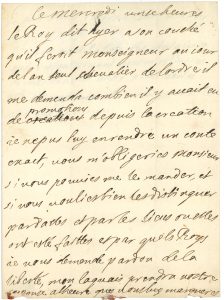 ce mercredi unse heures
le Roy dit hyer a son couché
qu'il feroit monseigneur au jour
de lan seul chevalier de lordre il
me demanda combien il y avait eu
promotion
de creations depuis la creation
je ne pus luy en rendre un conte
exact, vous m'obligeries monsieur
si vous pouvies me le mander, et
si vous voulies bien les distinguer
par dattes et par les lieux ou elles
ont esté faittes et par quels Roys
je vous demande pardon de la
liberté, mon laquais prendra vostre